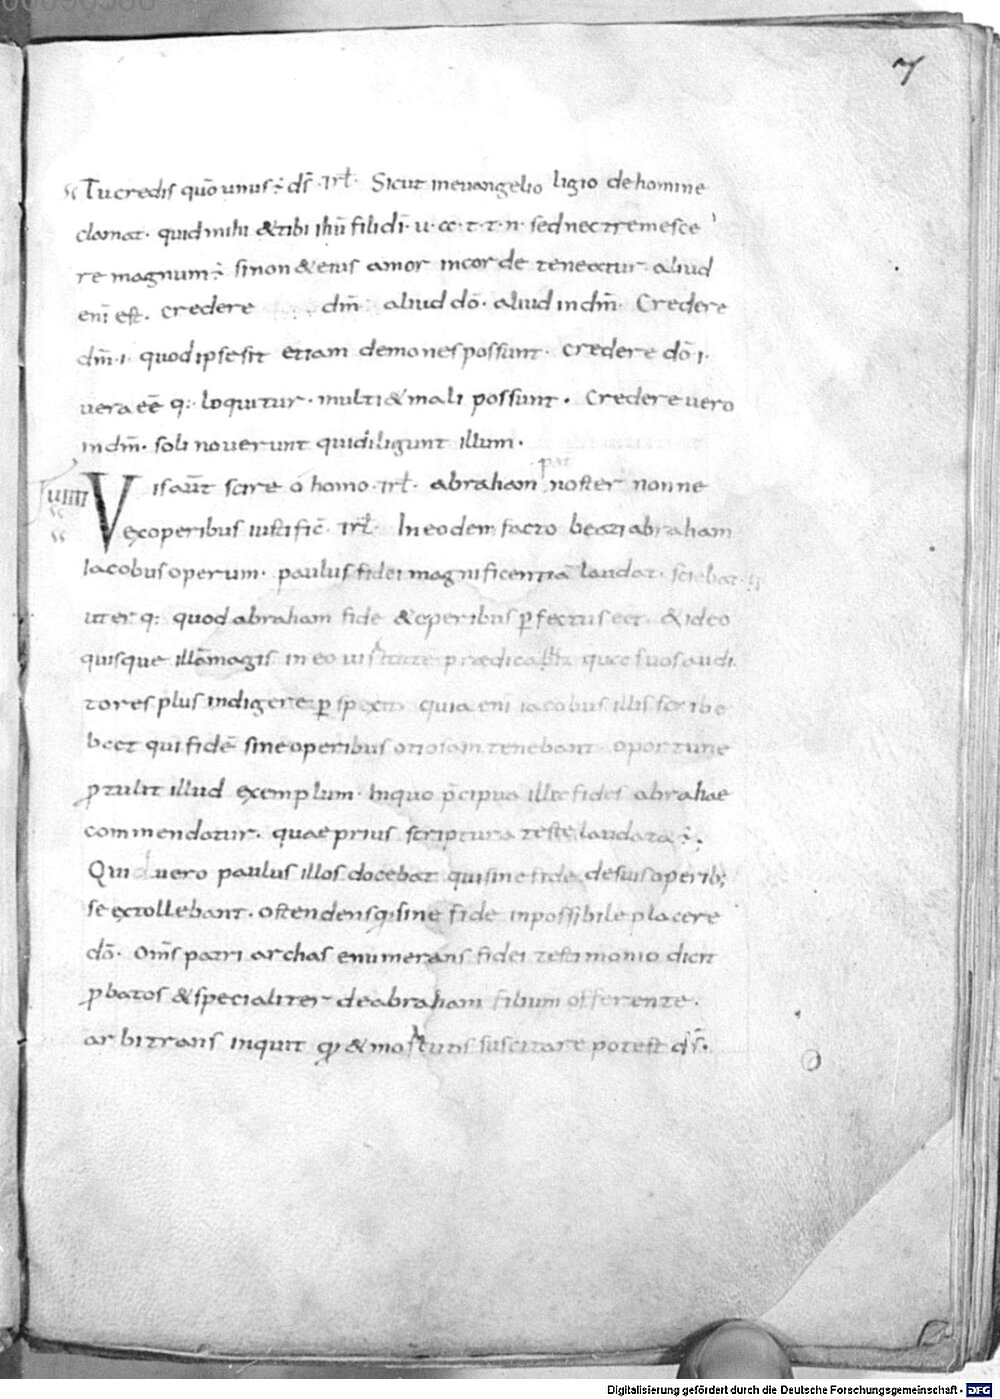 7
Tu credis qūo unus ÷ ds̄ · irł · Sicut in euangelio ligio de homine
clamat · quid mihi & tibi ihū fili dī · u · cc · t · t · n · sed nec tremesce
re magnum ÷ si non & eius amor in corde teneatur · aliud
enī est · credere dm̄ · aliud dō · aliud in dm̄ · Credere
dm̄ · i · quod ipse sit etiam demones possunt · credere dō i ·
uera eē q: loquitur · multi & mali possunt · Credere uero
in dm̄ · soli nouerunt qui diligunt illum ·
uiiii Vis aūt scire o homo · irł · abraham pat noster nonne
ex operibus iustific̄ · irł · In eodem facto beati abraham
Iacobus operum · paulus fidei magnificentiā laudat · sciebat
uterq: quod abraham fide & operibus ꝑfectus eet · & ideo
quisque illā magis in eo uirtutē prædicabat qua suos audi
tores plus indigere ꝑspexit quia enī iacobus illis scribe
beet qui fidē sine operibus otiosam tenebant oportune
ꝓtulit illud exemplum · In quo p̄cipua illic fidei abrahae
commendatur · quae prius scriptura teste laudata ÷ ·
Qui uero paulus illos docebat qui sine fide de suis operib;
se extollebant · ostendens q sine fide inpossibile placere
dō · Om̄s patriarchas enumerans fidei testimonio dicit
ꝓbatos & specialiter de abraham filium offerente ·
arbitrans inquit q & a mortuis suscitare potest ds̄ ·
Digitalisierung gefördert durch die Deutsche Forschungsgemeinschaft - DFG